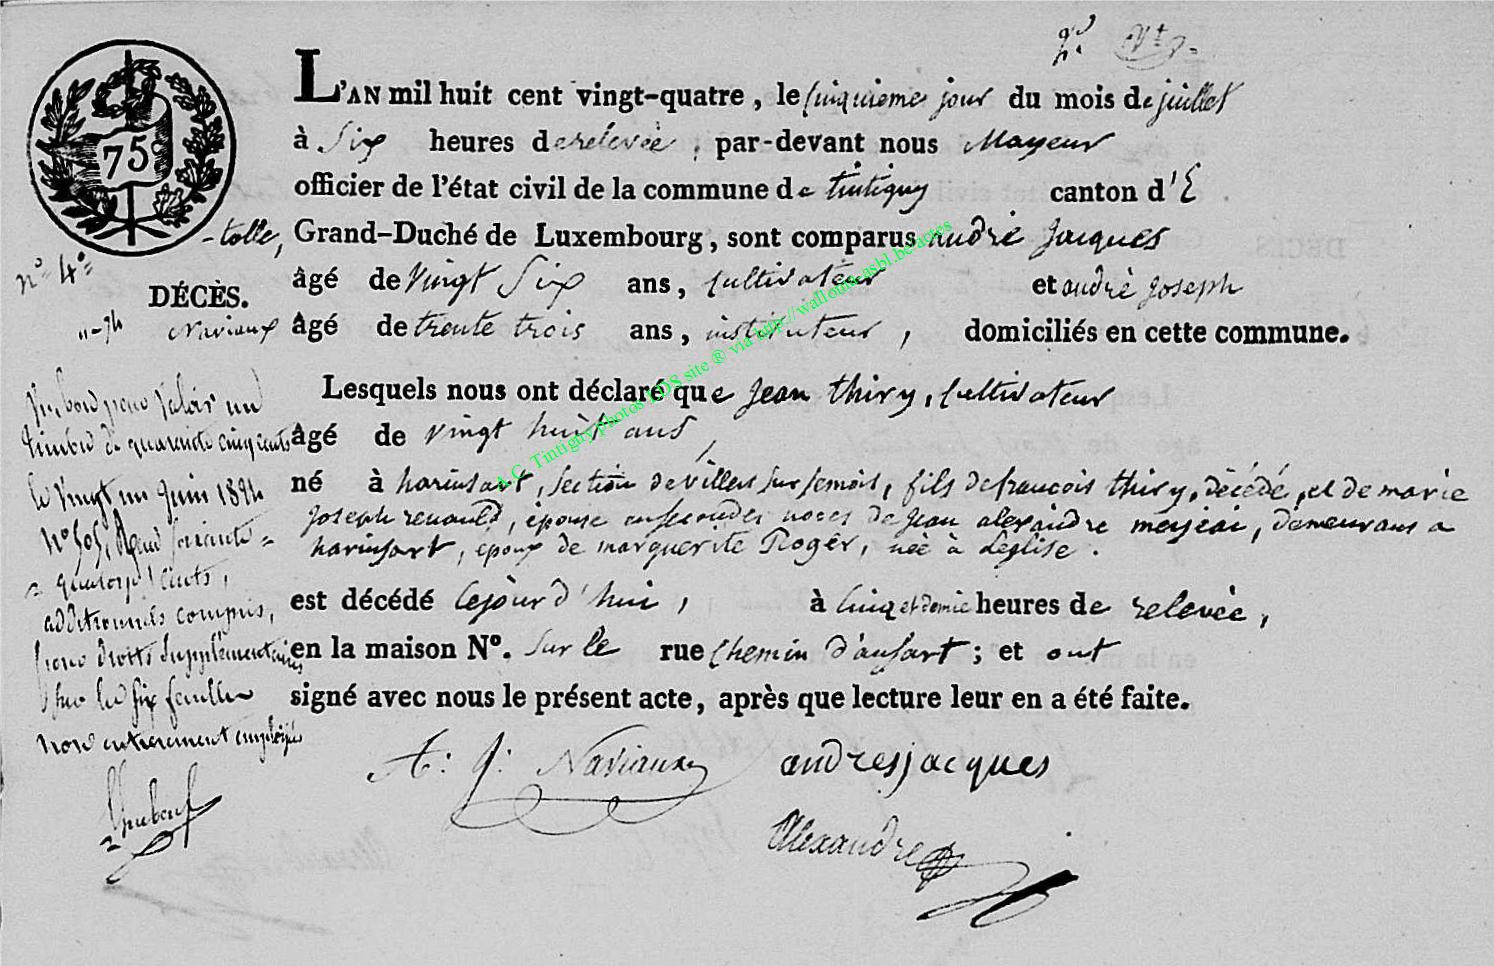 75
L'AN mil huit cent vingt-quatre, le cinquieme jour du mois de juillet
à Six heures de relevée, par-devant nous Mayeur
officier de l'état civil de la commune de tintigny canton d'E
-talle, Grand-Duché de Luxembourg, sont comparus andré Jacques
n° 4
DÉCÈS.
âgé de Vingt Six ans, Cultivateur et andré Joseph
Naviaux
âgé de trente trois ans, instituteur, domiciliés en cette commune.
Lesquels nous ont déclaré que Jean thiry, Cultivateur
âgé de vingt huit ans,
né à harinsart, Section de villers sur semois, fils de francois thiry, décédé, et de marie
Joseph renauld, épouse en secondes noces de Jean alexandre merjeai, demeurans a
harinsart, époux de marguerite Roger, née à Léglise.
est décédé Cejourd'hui, à Cinq et demie heures de relevée,
en la maison N°. Sur le rue Chemin d'ansart; et ont
signé avec nous le présent acte, après que lecture leur en a été faite.
pour Valoir un
timbre de quarante cinq cents
le Vingt un Juin 1824
quatorze Cents,
additionnels compris,
pour droits Supplémentaires
Sur les Six feuilles
non entierement employées
A: J: Naviaux
andresjacques
Alexandre
A.C. Tintigny photos LDS site ® via http://wallonia-asbl.be/actes